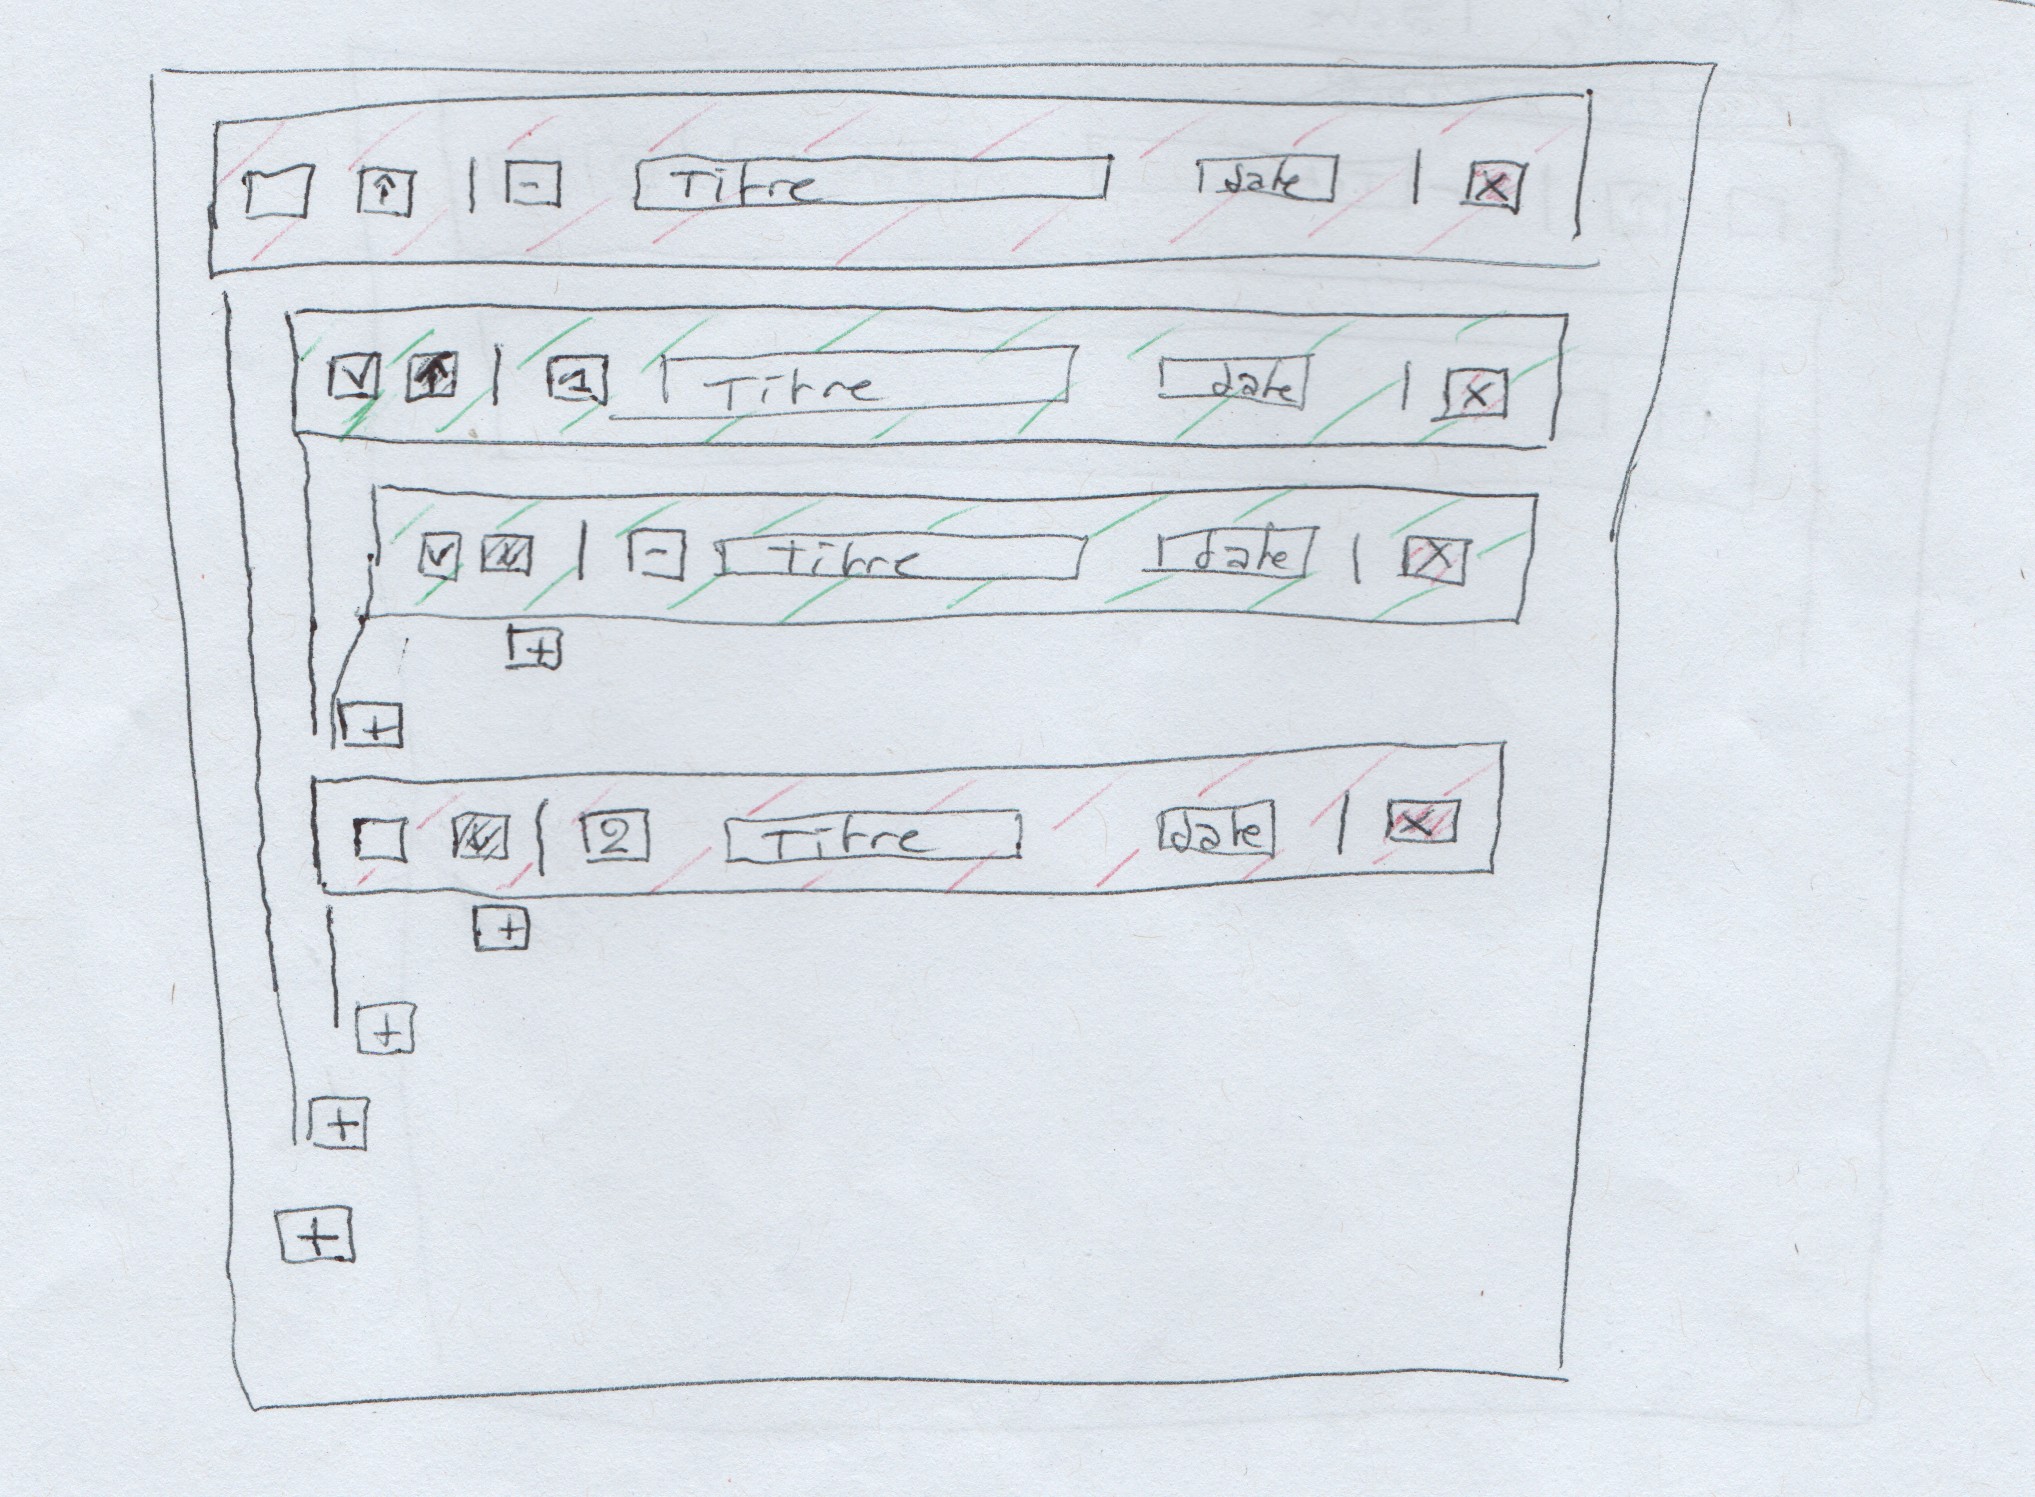 ↑ | - Titre date | X
✓ ↑ | 1 Titre date | X
✓ | - Titre date | X
+
+
2 Titre date | X
+
+
+
+